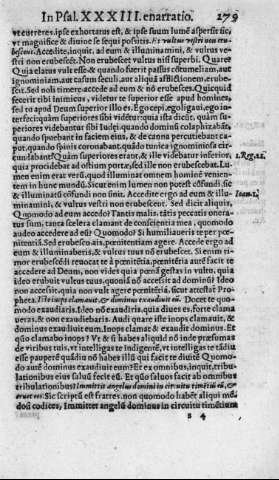 In Psal. XXXIII. enarratio. 279
ut curreres. ipse exhortatus est, & ipse suum lumē aspersit tibi,
ut magnifice & diuine se sequi possitis. Et uultus uestri non eru-
bescet. Accedite, inquit, ad eum & illuminamini, & uultus ue-
stri non erubescent. Non erubescet uultus nisi superbi. Quare?
Quia elatus uult esse: & quando fuerit passus cōtumeliam, aut
ignominiam, aut casum seculi, aut aliquā afflictionem, erube-
scet. Sed noli timere, accede ad eum & nō erubesces. Quicquid
fecerit tibi inimicus, uidetur te superior esse apud homines,
sed tu apud Deum superior illo es. Ego cepi, ego ligaui, ego in-
terfeci: quàm superiores sibi uidētur quia ista dicūt, quàm su-
periores uidebantur sibi Iudęi, quando dominū colaphizabāt,
quando spuebant in faciem eius, & de canna percutiebant ca-
put, quando spinis coronabant, quādo tunica ignominiosa cir-
cundabant? Quàm superiores erant, & ille uidebatur inferior,
quia procidebat ad ostium porta, sed ille non erubescebat. Lu- 1. Reg. 21.
men enim erat uerū, quod illuminat omnem hominē uenien-
tem in hunc mundū. Sicut enim lumen non potest cōfundi, sic
& illuminatū cōfundi non sinit. Accedite ergo ad eum & illu- Ioan. 1.
minamini, & uultus uestri non erubescent. Sed dicit aliquis,
Quomodo ad eum accedo? Tantis malis, tātis peccatis onera-
tus sum, tanta scelera clamant de conscientia mea. quomodo
audeo accedere ad eū? Quomodo? Si humiliaueris te per poe-
nitentiā. Sed erubesco ais, poenitentiam agere. Accede ergo ad
eum & illuminaberis, & uultus tuus nō erubescet. Si enim ti-
mor erubescēdi reuocat te à poenitentia, poenitētia autē facit te
accedere ad Deum, non uides quia poenā gestas in uultu, quia
ideo erubuit uultus tuus, quoniā nō accessit ad dominū? Ideo
non accessit, quia non uult agere poenitētiā, sicut attestāt Pro-
pheta. Iste inops clamauit, & dominus exaudiuit eū. Docet te quo-
modo exaudiaris. Ideo nō exaudiris, quia diues es. forte clama
ueras, & non exaudiebaris. Audi quare. iste inops clamauit, &
dominus exaudiuit eum. Inops clama & exaudit dominus. Et
quō clamabo inops? Vt & si habes aliquid nō inde praesumas
de uiribus tuis, ut intelligas te indigentē, ut intelligas te tādiu
esse pauperē quādiu nō habes illū qui facit te diuitē. Quomo-
do autē dominus exaudiuit eū? Et ex omnibus, inquit, tribu-
lationibus eius saluū fecit eū. Et quō saluos facit ab omnibus
tribulationibus? Immittit angelus domini in circuitu timētiū eū, &
eruet eos. Sic scriptū est fratres, non quomodo habēt aliqui mē-
dosi codices, Immittet angelū dominus in circuitu timētium
s 4